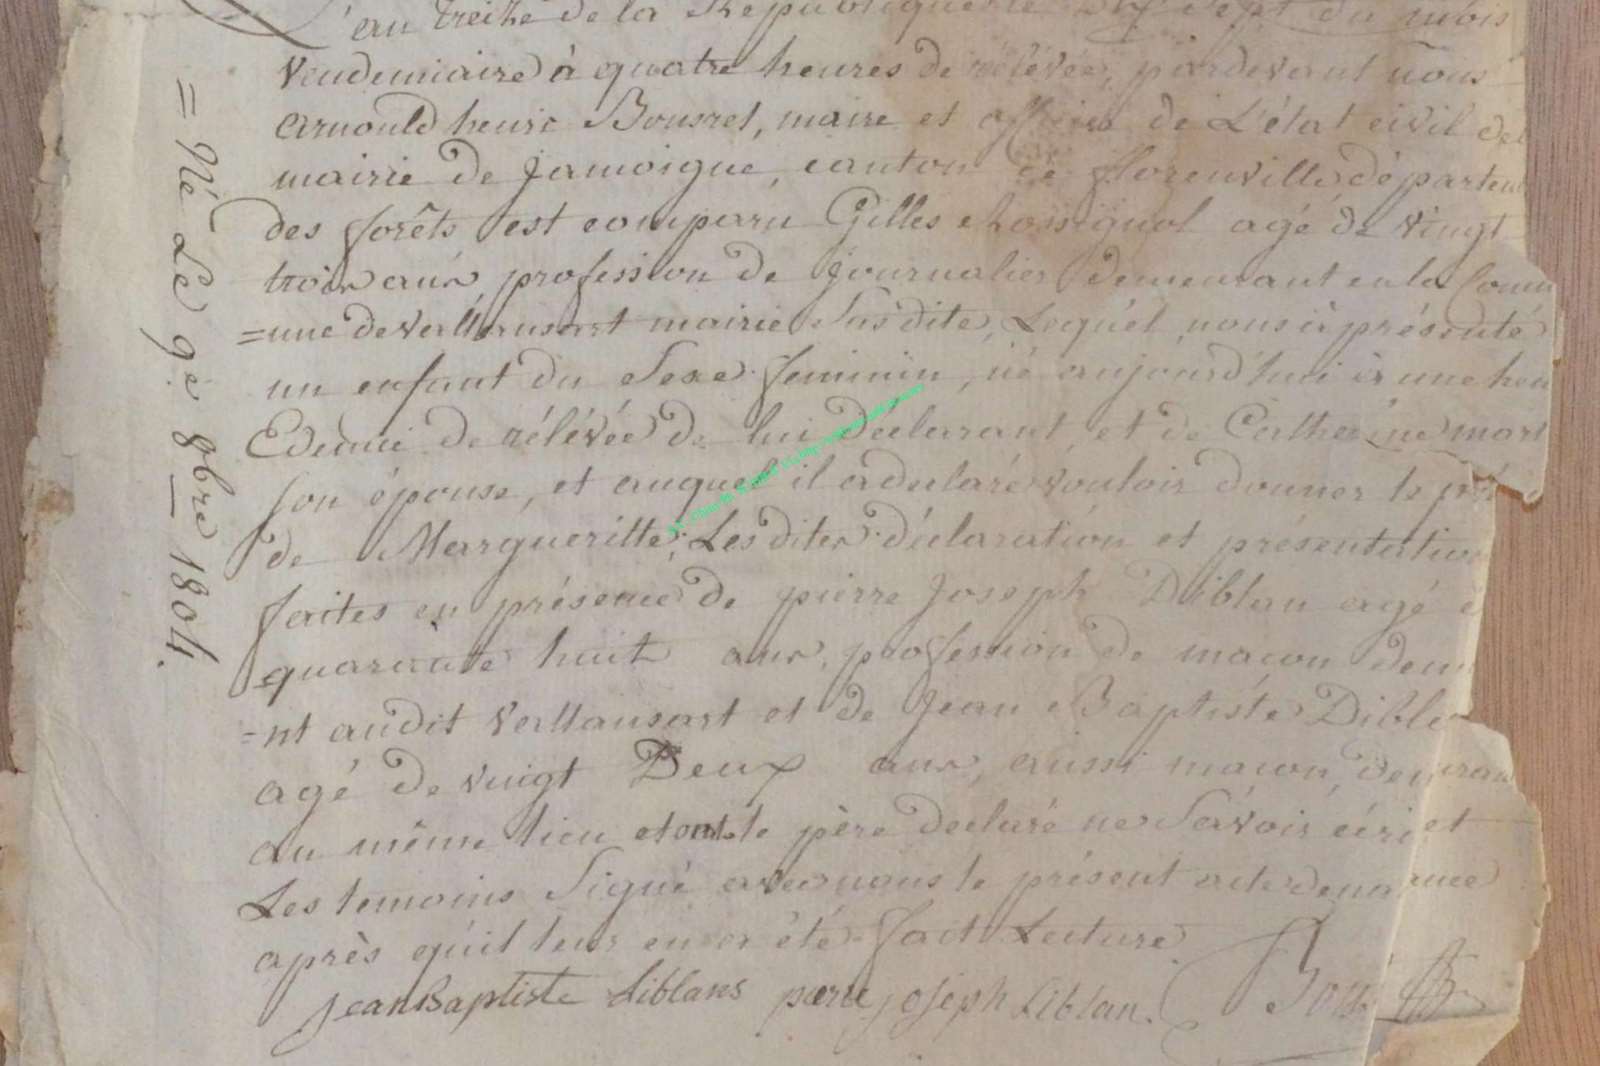 L'an treize de la République le dix sept du mois
Vendemiaire à quatre heures de rélévée, pardevant nous
Arnould henri Bousret, maire et officier de L'état civil de
mairie de Jamoigne, canton de florenville départem
des forêts est comparu Gilles Rossignol agé de vingt
trois ans profession de journalier demeurant en la Comm
=une de vallansart mairie Susdite, Lequel nous à présenté
un enfant du Sexe feminin, né aujourd'hui à une heu
Edemie de rélévée de lui déclarant et de Catherine mart
son épouse, et auquel il a déclaré vouloir donner le pré
de Margueritte, Les dites déclaration et présentation
faites en présence de pierre Joseph Diblan agé d
quarante huit ans, profession de maçon dem
=nt audit vallansart et de Jean Baptiste Dibla
agé de vingt Deux ans, aussi maçon, demeuran
au même lieu et ont le père declaré ne Sçavoir écri et
Les temoins Signé avec nous le présent acte de na ance
après qu'il leur en a été fait Lecture.
Jean Baptiste diblans pierre joseph diblan.
= Né Le 9.e 8bre 1804.